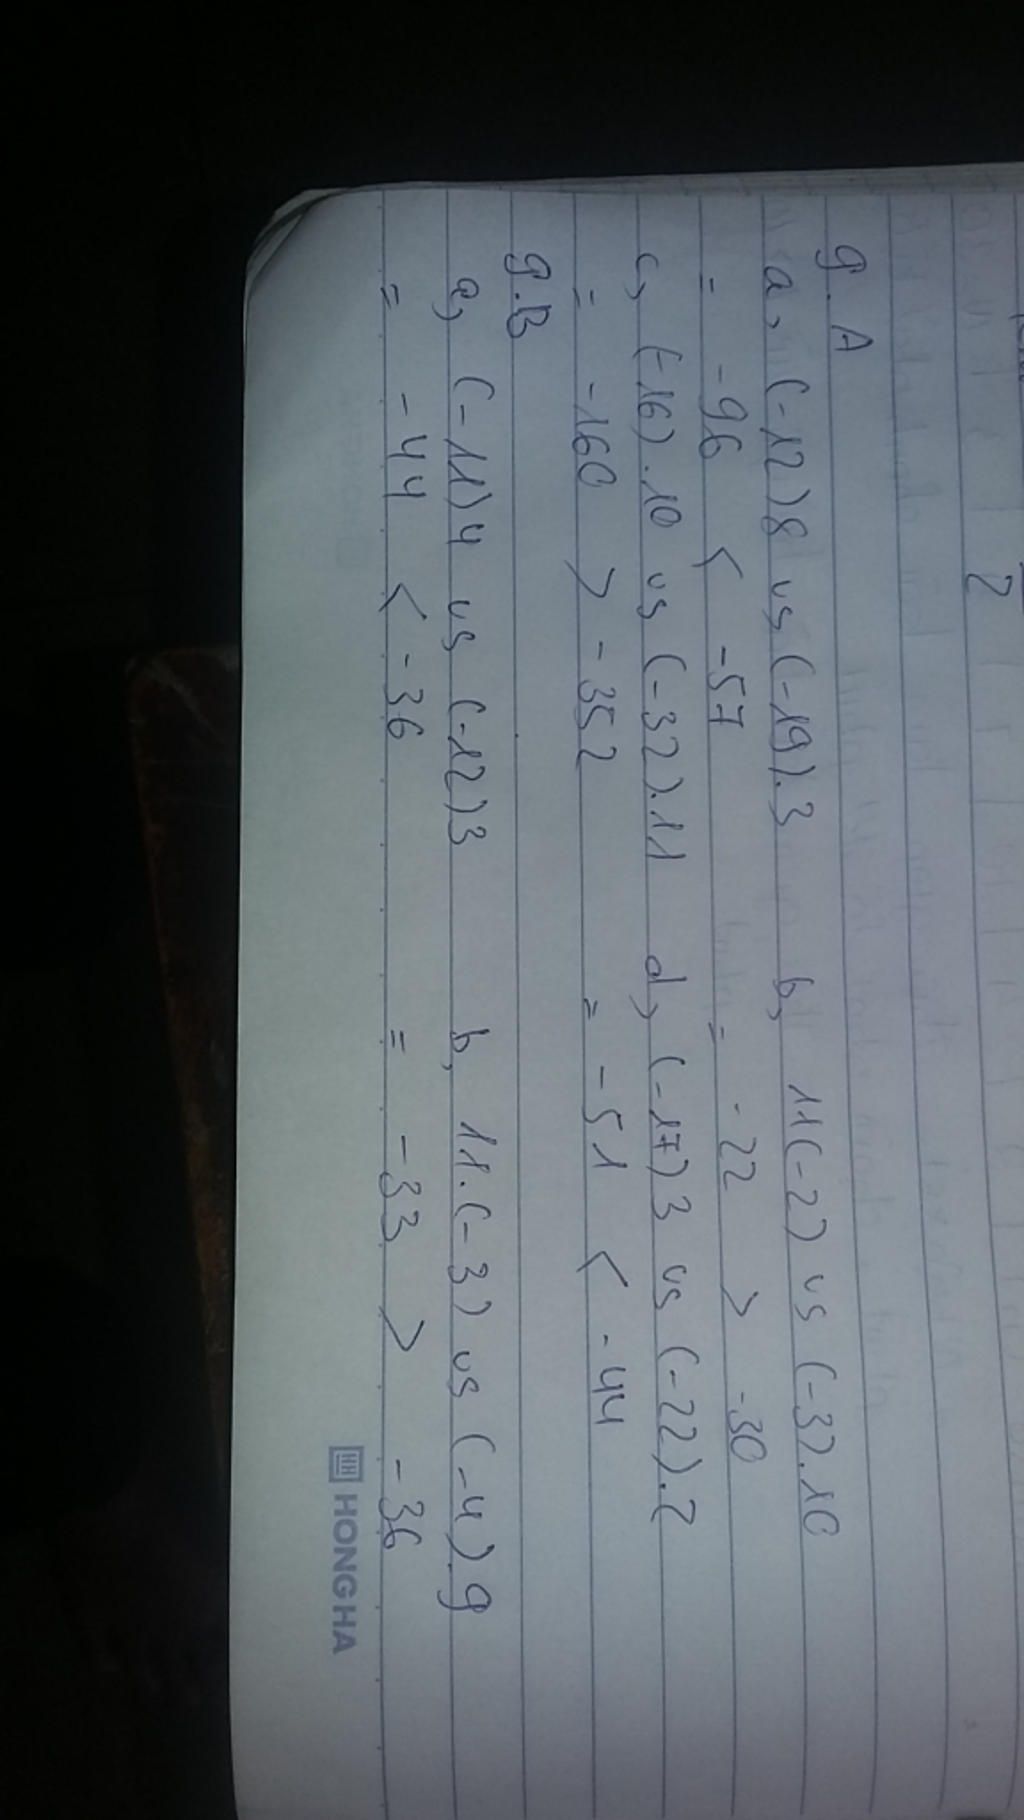 2
9.A
a, (-12)8 vs (-19).3 b, 11(-2) vs (-3).10
= -96 < -57 = -22 > -30
c, (-16).10 vs (-32).11 d, (-17)3 vs (-22).2
= -160 > -352 = -51 < -44
9.B
a, (-11)4 vs (-12)3 b, 11.(-3) vs (-4).9
= -44 < -36 = -33 > -36
HONG HA